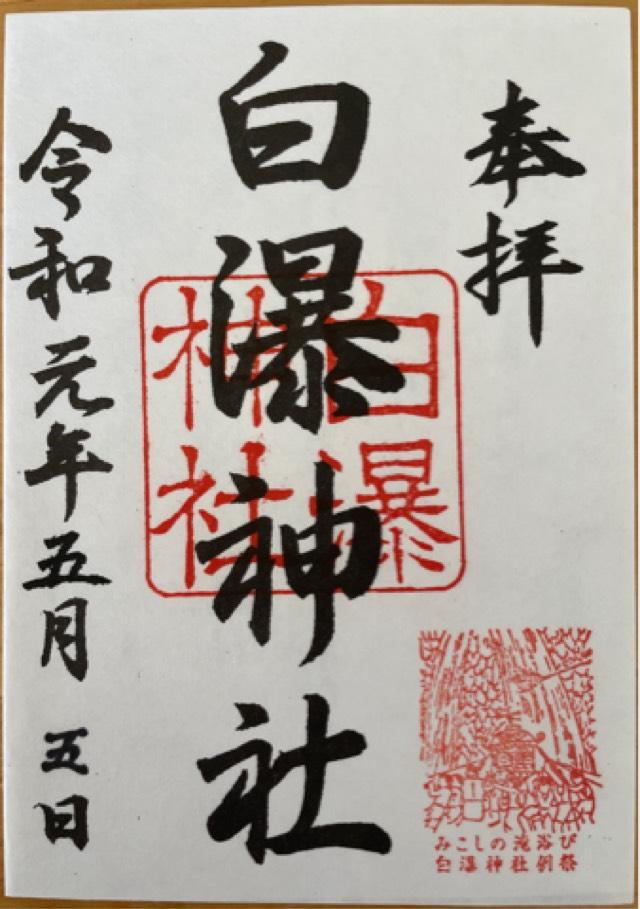 奉拝
白瀑神社
白瀑
神社
令和元年五月 五日
みこしの滝浴び
白瀑神社例祭